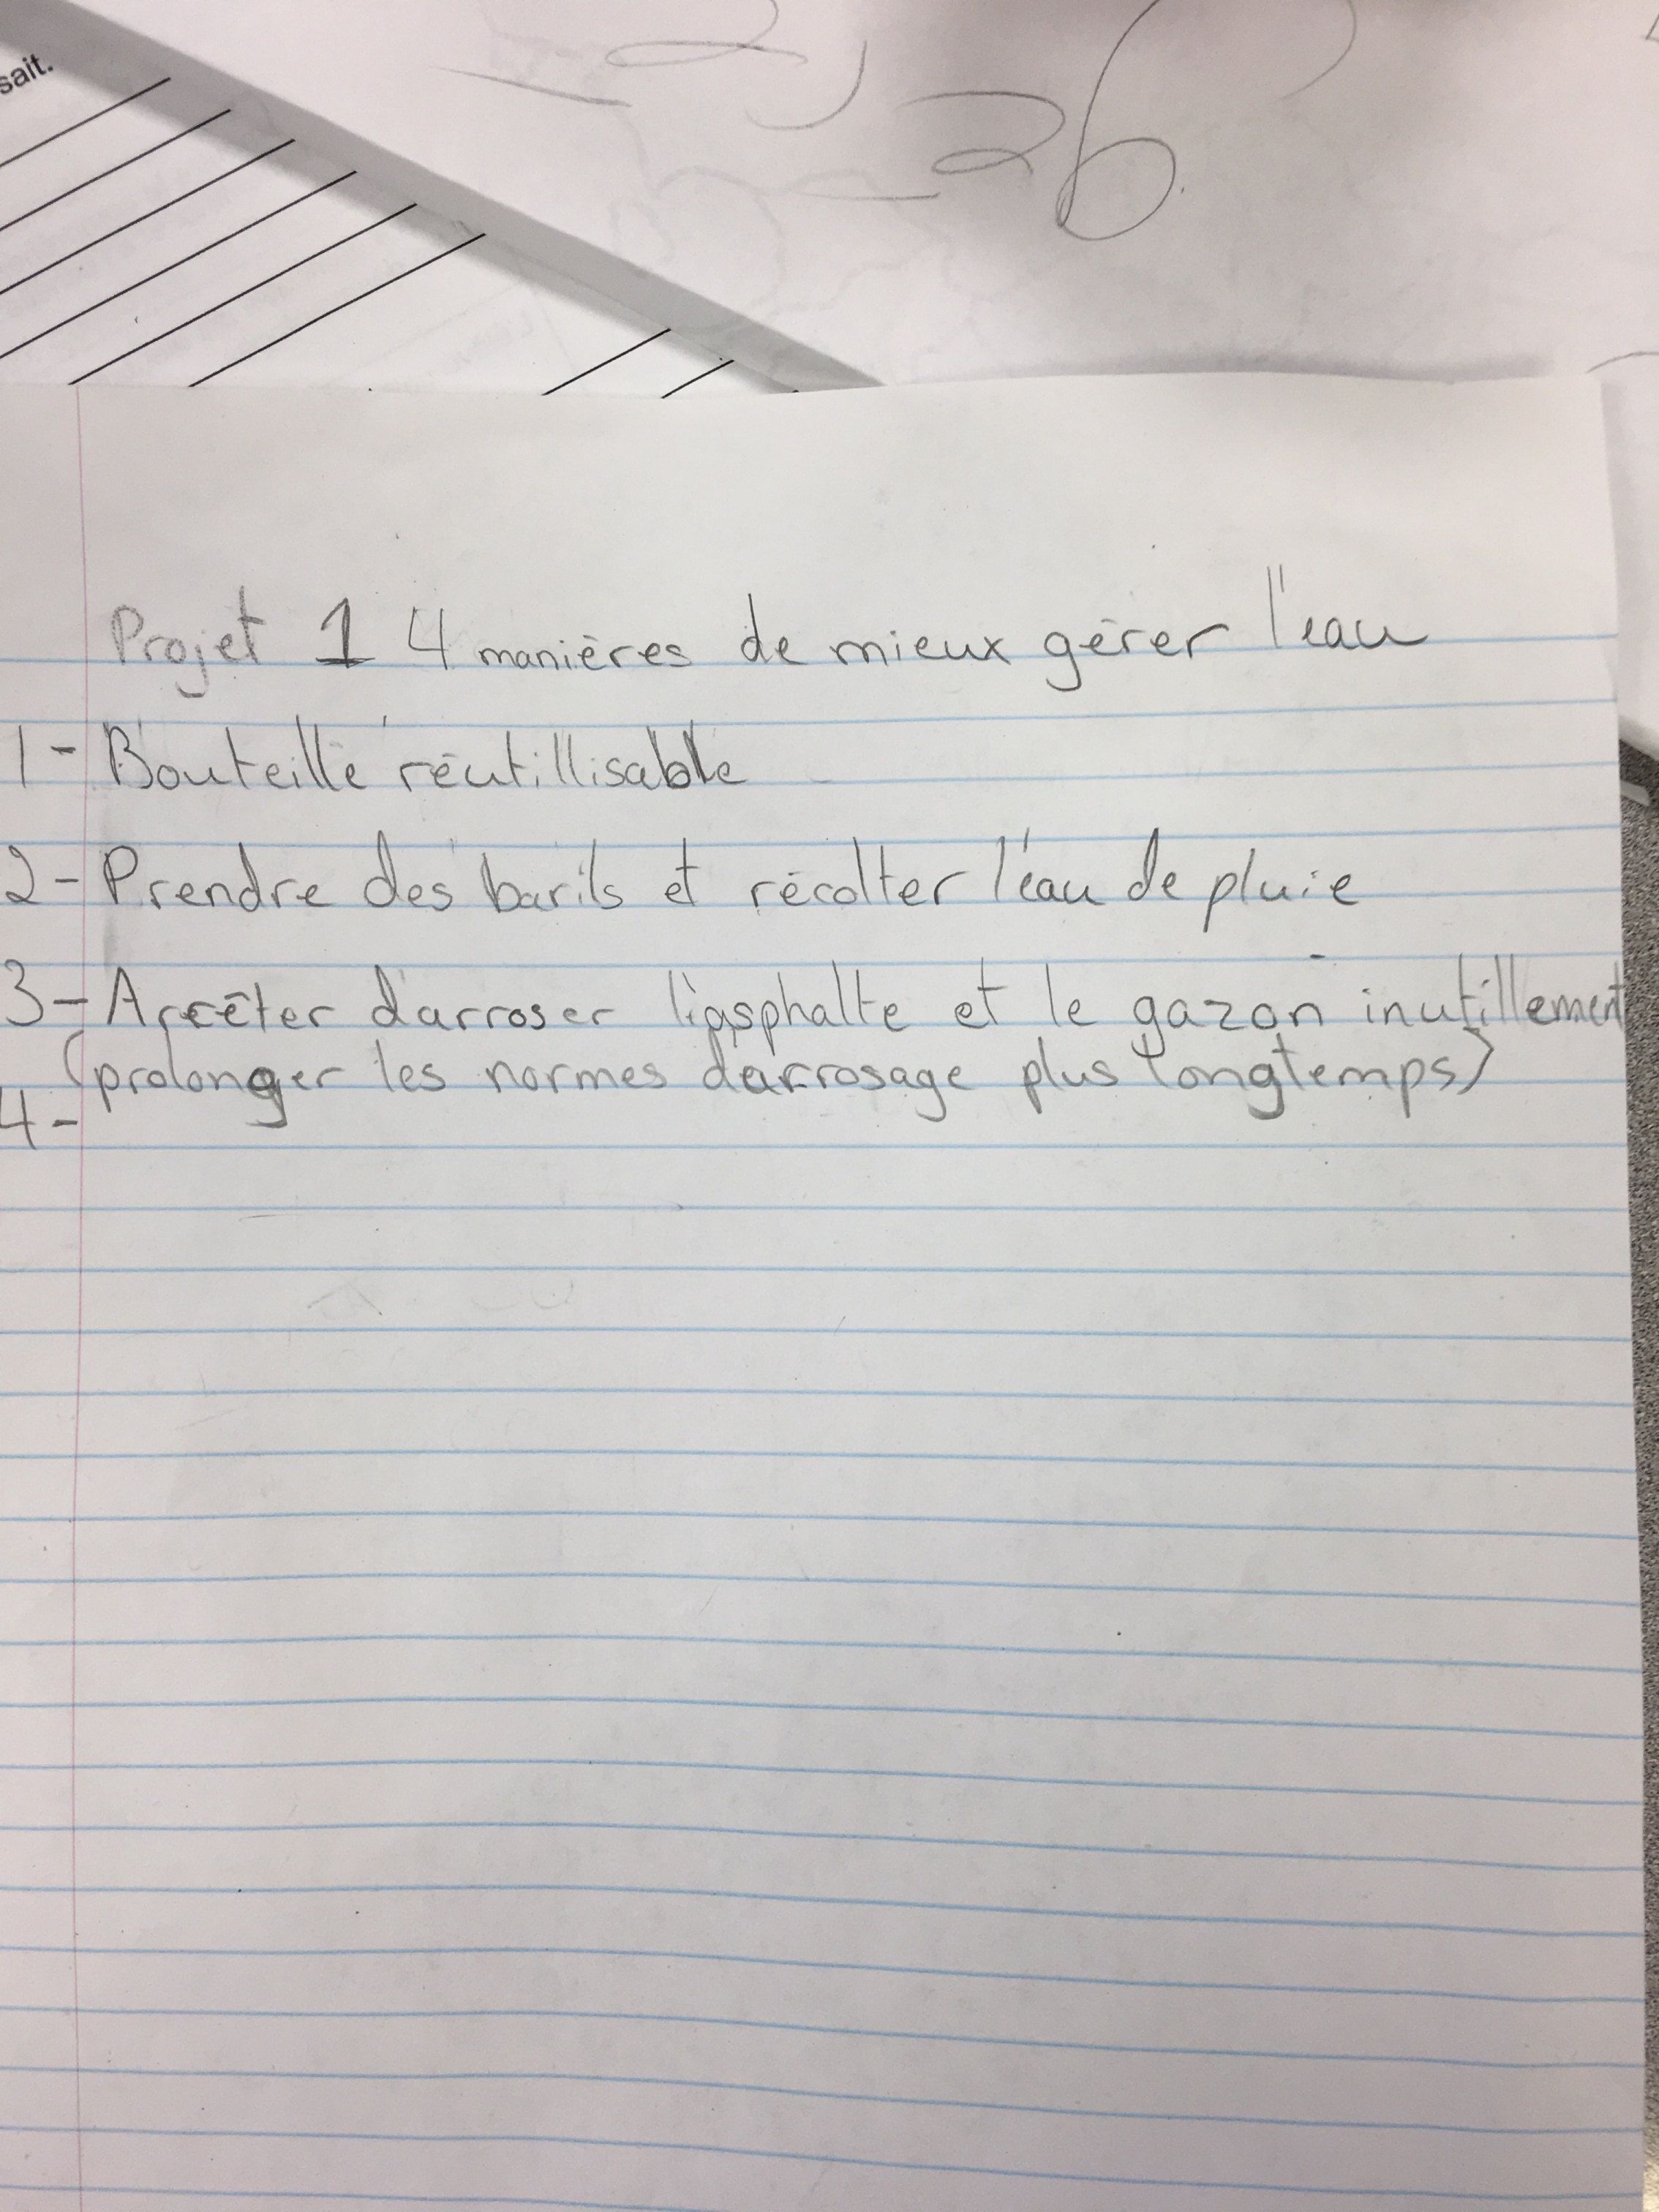 sait.
26
Projet 1 4 manières de mieux gérer l'eau
1- Bouteille réutillisable
2- Prendre des barils et récolter l'eau de pluie
3- Arrêter d'arroser l'asphalte et le gazon inutillement
(prolonger les normes d'arrosage plus longtemps)
4-